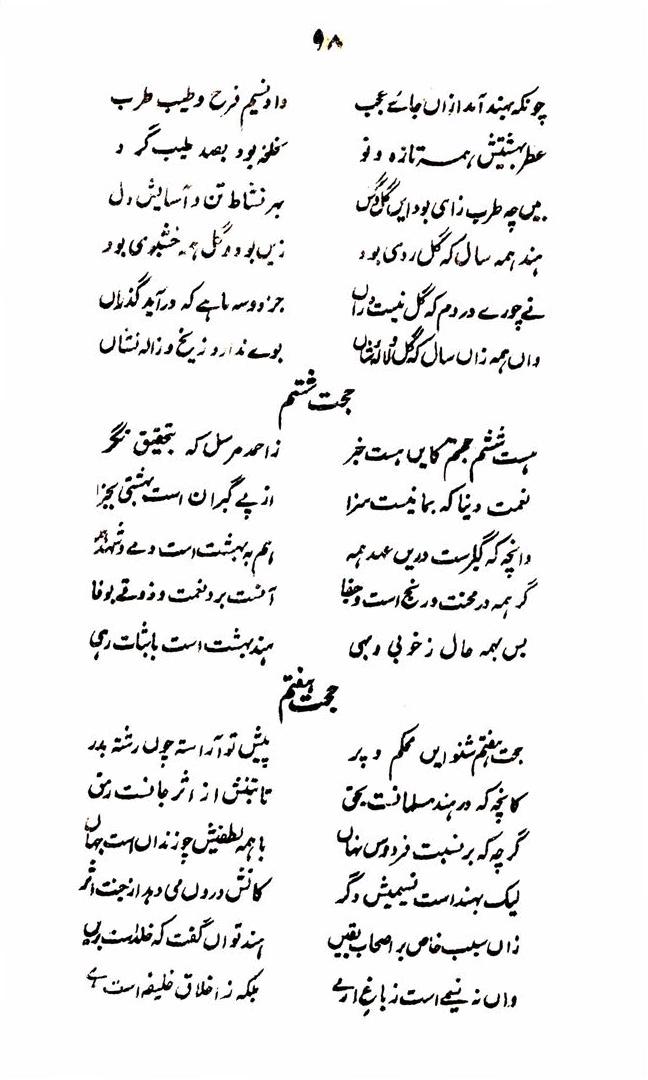 ۹۸
چونکہ بہند آمد ازاں جائے عجب داد نسیم فرح و طیب طرب
عطر بہشتیش ہمہ تازہ و نو بود بصد طیب گرد
بیں چہ طرب زای بود ایں گل بہر نشاط تن و آسایش دل
ہند ہمہ سال کہ گل روی بود زیں بود و گل ہمہ خشبوی بود
نے چو رے و روم کہ گل نیست دراں جز دو سہ ماہے کہ درآید گذراں
واں ہمہ زاں سال کہ گل لالہ نشاں بوے ندارد ز یخ و ژالہ نشاں
حجت ششم
ہست ششم حجتم کایں ہست خبر ز احمد مرسل کہ بتحقیق نگر
نعمت دنیا کہ بما نیست سزا از پے گبران است بہشتی بجزا
وانچہ کہ گبرست دریں عہد ہمہ ہم بہ بہشت است و مے و شہد ہمہ
گر ہمہ در محنت و رنج است و جفا آفت برو نعمت و ذوقے بوفا
بس بہمہ حال ز خوبی و بہی ہند بہشت است باثبات رہی
حجت ہفتم
حجت ہفتم شنو ایں محکم و پر پیش تو آراستہ چوں رشتہ بدر
کانچہ کہ در ہند مسلمانست بحق تا تنش از اثر جانست رمق
گرچہ کہ بر نسبت فردوس نہاں با ہمہ لطفیش چو زنداں است جہاں
لیک بہند است نسیمیش دگر کانش دروں می دہد از جنت اثر
زاں سبب خاص بر اصحاب یقیں ہند تواں گفت کہ خلدست بریں
واں نہ نسیمے است ز باغ ارمے بلکہ ز اخلاق خلیفہ است